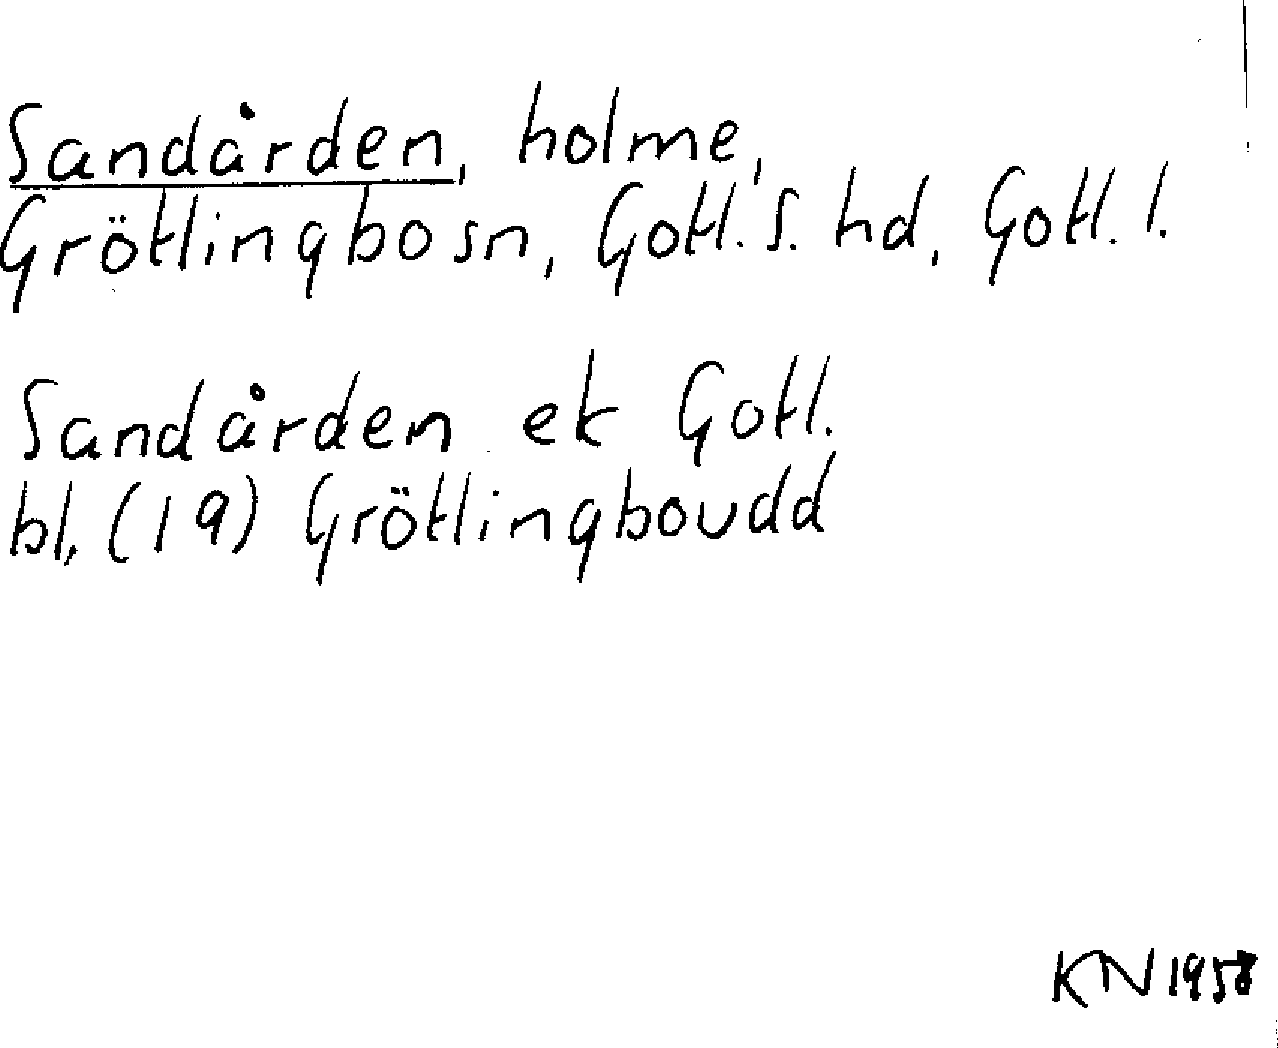 Sandården, holme,
Grötlingbosn, Gotl. S. hd, Gotl. l.
Sandården ek Gotl.
bl, (19) Grötlingboudd
KN 1958